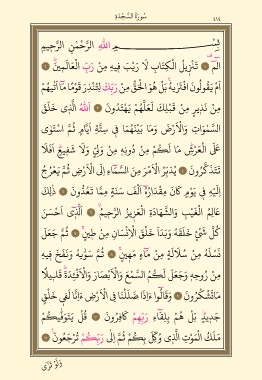 سُورَةُ السَّجْدَةِ
٤١٤
بِسْمِ اللّٰهِ الرَّحْمٰنِ الرَّحِيمِ
الٓمٓ ۞ تَنْزِيلُ الْكِتَابِ لَا رَيْبَ فِيهِ مِنْ رَبِّ الْعَالَمِينَۜ ۞
اَمْ يَقُولُونَ افْتَرٰيهُۚ بَلْ هُوَ الْحَقُّ مِنْ رَبِّكَ لِتُنْذِرَ قَوْمًا مَٓا اَتٰيهُمْ
مِنْ نَذِيرٍ مِنْ قَبْلِكَ لَعَلَّهُمْ يَهْتَدُونَ ۞ اَللّٰهُ الَّذِي خَلَقَ
السَّمٰوَاتِ وَالْاَرْضَ وَمَا بَيْنَهُمَا فِي سِتَّةِ اَيَّامٍ ثُمَّ اسْتَوٰى
عَلَى الْعَرْشِۜ مَا لَكُمْ مِنْ دُونِهِ مِنْ وَلِيٍّ وَلَا شَفِيعٍۜ اَفَلَا
تَتَذَكَّرُونَ ۞ يُدَبِّرُ الْاَمْرَ مِنَ السَّمَٓاءِ اِلَى الْاَرْضِ ثُمَّ يَعْرُجُ
اِلَيْهِ فِي يَوْمٍ كَانَ مِقْدَارُهُٓ اَلْفَ سَنَةٍ مِمَّا تَعُدُّونَ ۞ ذٰلِكَ
عَالِمُ الْغَيْبِ وَالشَّهَادَةِ الْعَزِيزُ الرَّحِيمُۙ ۞ اَلَّذِٓي اَحْسَنَ
كُلَّ شَيْءٍ خَلَقَهُ وَبَدَاَ خَلْقَ الْاِنْسَانِ مِنْ طِينٍۚ ۞ ثُمَّ جَعَلَ
نَسْلَهُ مِنْ سُلَالَةٍ مِنْ مَٓاءٍ مَهِينٍۚ ۞ ثُمَّ سَوّٰيهُ وَنَفَخَ فِيهِ
مِنْ رُوحِهِ وَجَعَلَ لَكُمُ السَّمْعَ وَالْاَبْصَارَ وَالْاَفْـِٔدَةَۜ قَلِيلًا
مَا تَشْكُرُونَ ۞ وَقَالُٓوا ءَاِذَا ضَلَلْنَا فِي الْاَرْضِ ءَاِنَّا لَفِي خَلْقٍ
جَدِيدٍۜ بَلْ هُمْ بِلِقَٓاءِ رَبِّهِمْ كَافِرُونَ ۞ قُلْ يَتَوَفّٰيكُمْ
مَلَكُ الْمَوْتِ الَّذِي وُكِّلَ بِكُمْ ثُمَّ اِلٰى رَبِّكُمْ تُرْجَعُونَ۟ ۞
وَلَوْ تَرٰٓى